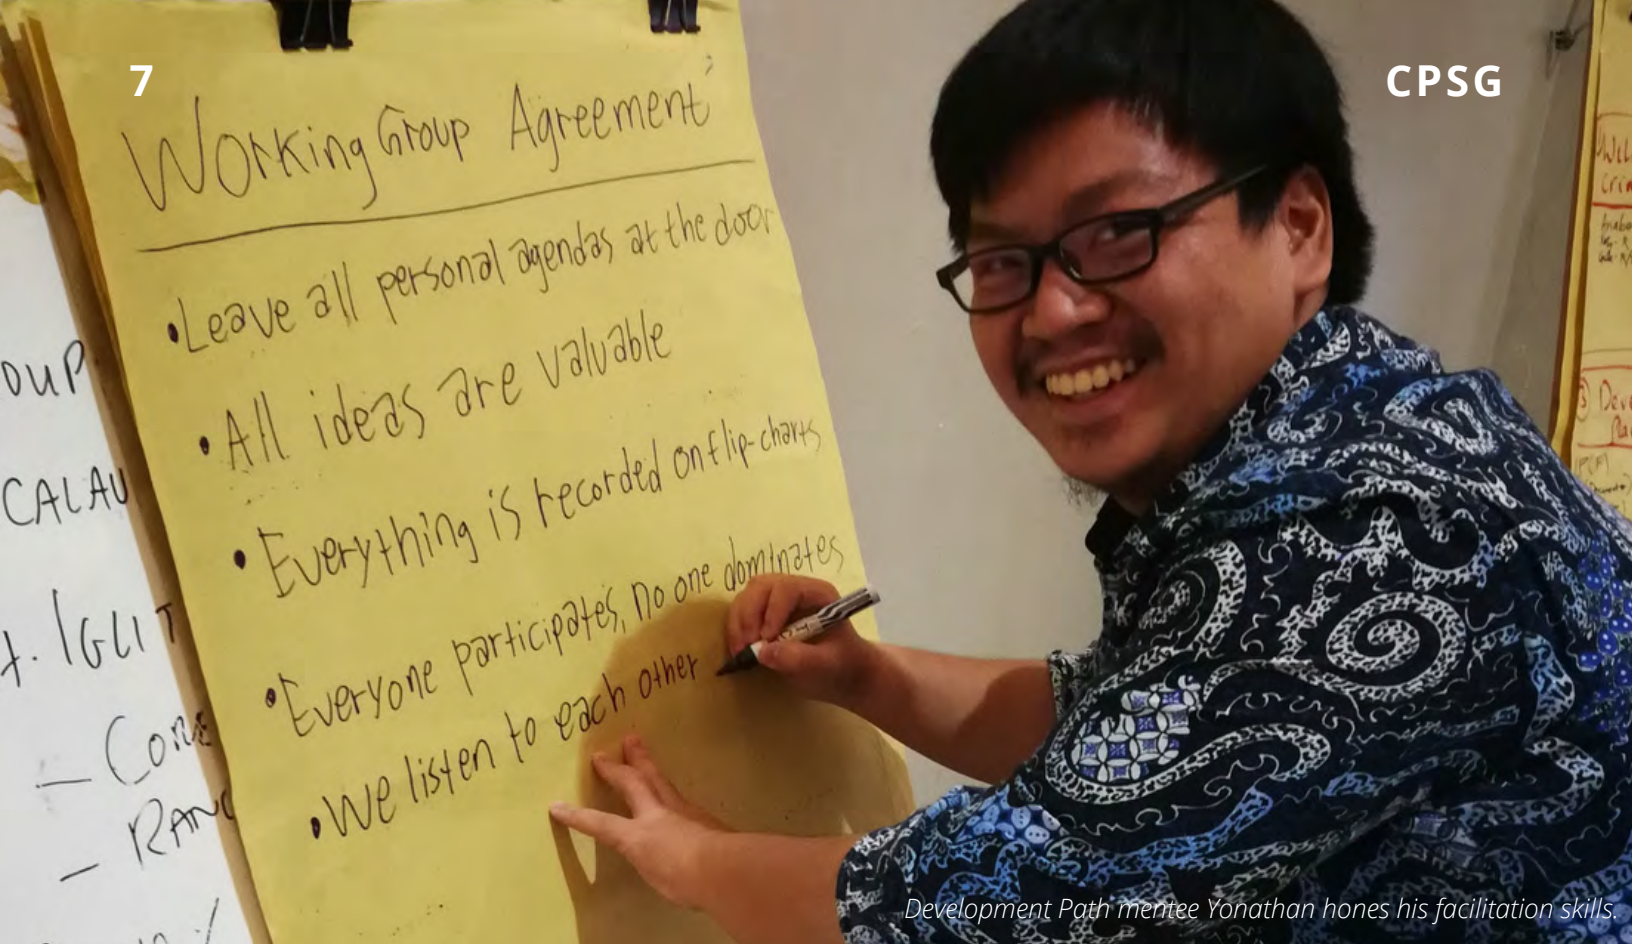 7
CPSG
Working Group Agreement
•Leave all personal agendas at the door
•All ideas are valuable
•Everything is recorded on flip-charts
•Everyone participates, no one dominates
•We listen to each other
OUP
CALAU
IGLIT
— CORE
— RANC
Development Path mentee Yonathan hones his facilitation skills.